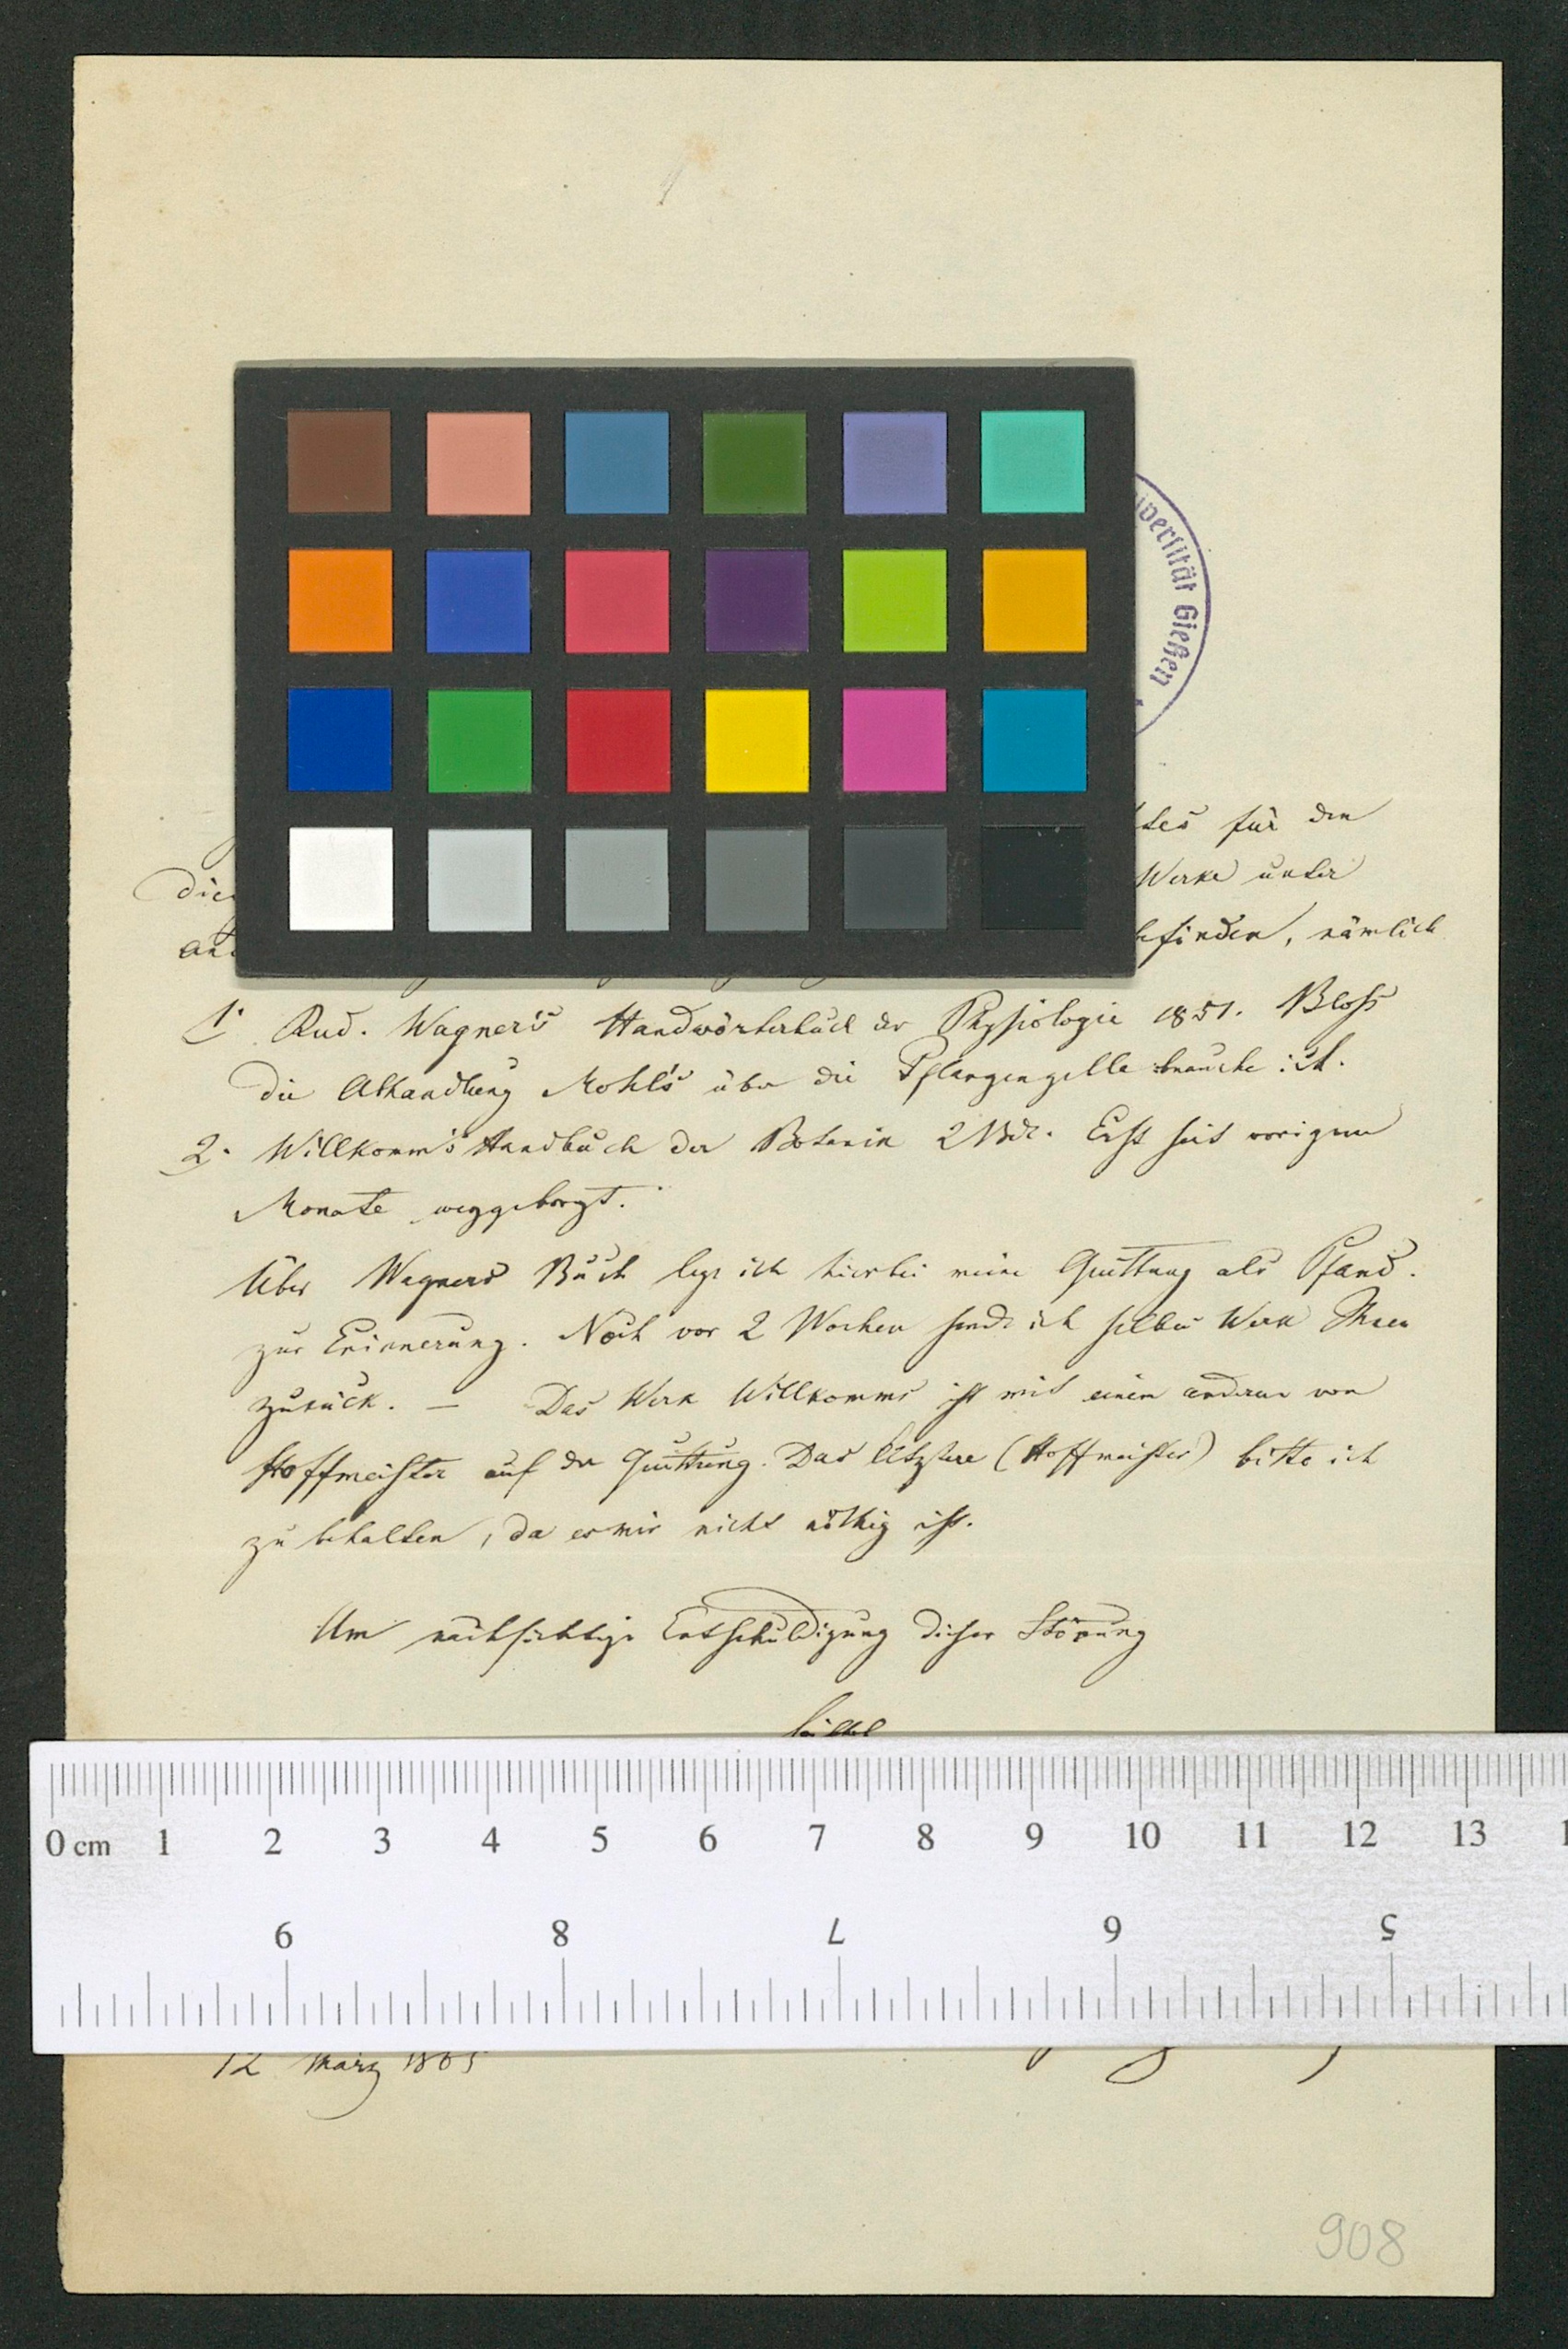 iversität Gießen
für den
Werke unter
befinden, nämlich
1. Rud. Wagner's Handwörterbuch der Physiologie 1851. Bloss
die Abhandlung Mohl's über die Pflanzenzelle brauche ich.
2. Willkomm's Handbuch der Botanik 2 Bde. Erst seit vorigem
Monate weggeborgt.
Über Wagners Buch lege ich hierbei meine Quittung als Pfand.
zur Erinnerung. Noch vor 2 Wochen sende ich selber Werk Ihnen
zurück. — Das Werk Willkomms ist mit einem anderen von
Hoffmeister auf der Quittung. Das letztere (Hoffmeister) bitte ich
zu behalten, da es mir nicht nöthig ist.
Um nachsichtige Entschuldigung dieser Störung
bittet
0 cm 1 2 3 4 5 6 7 8 9 10 11 12 13
9 8 7 6 5
12 März 1865
908